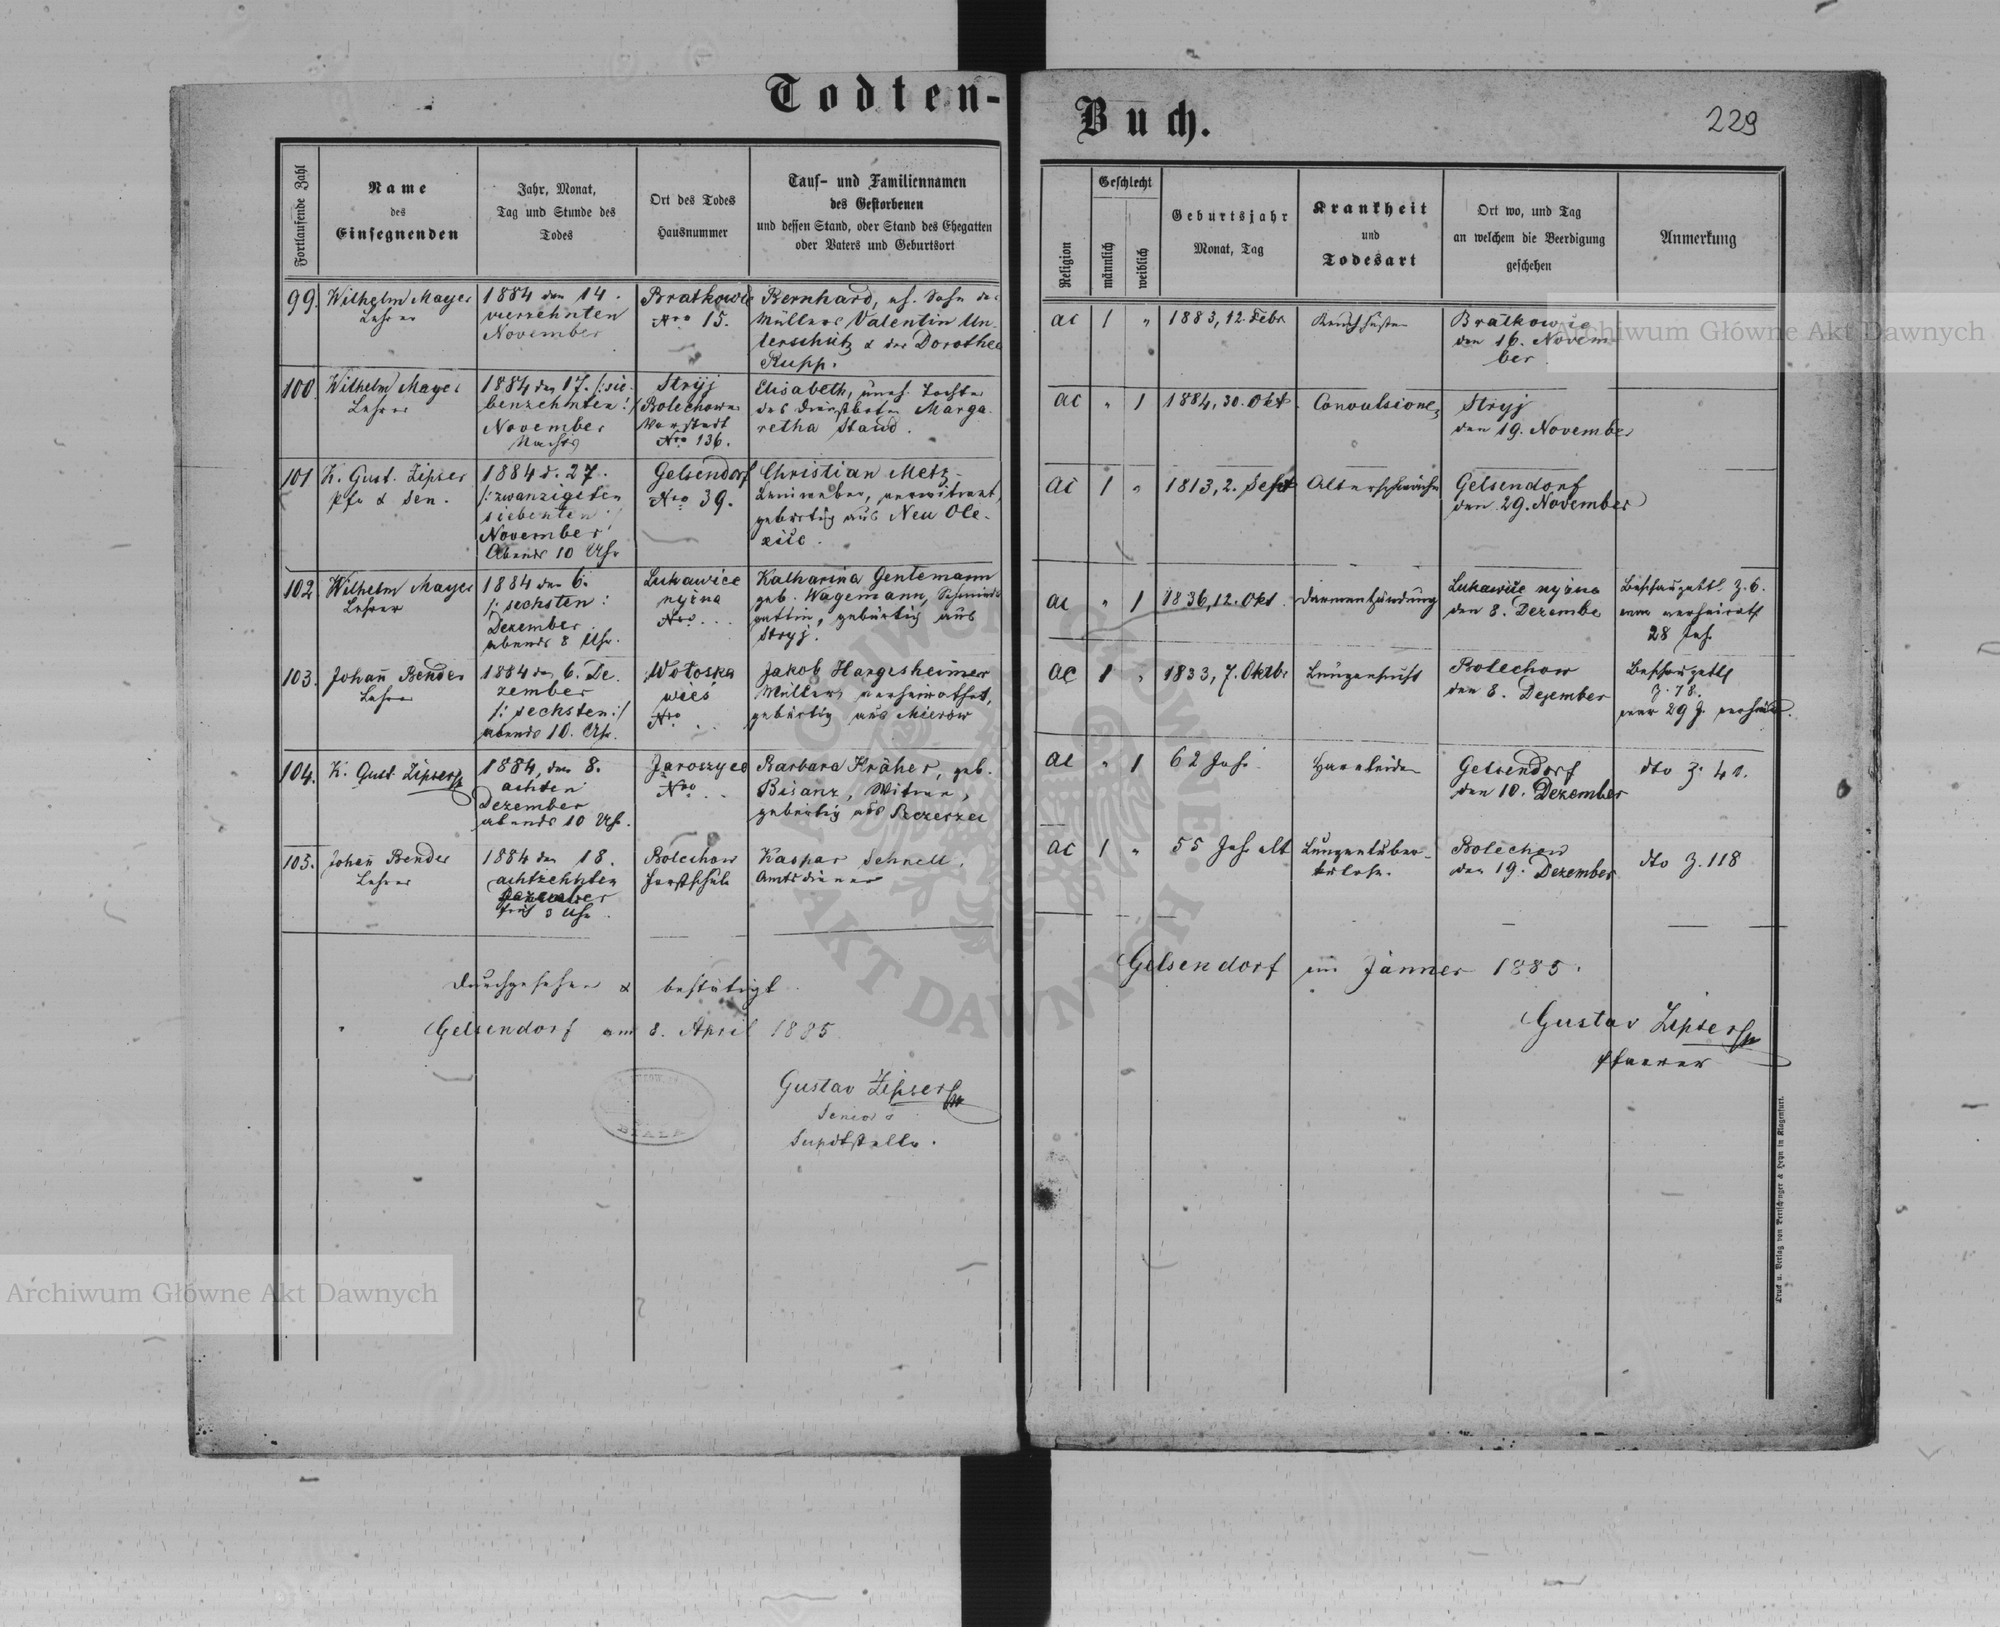 Todten-
Fortlaufende Zahl
Name
des
Einsegnenden
Jahr, Monat,
Tag und Stunde des
Todes
Ort des Todes
Hausnummer
Tauf- und Familiennamen
des Gestorbenen
und dessen Stand, oder Stand des Ehegatten
oder Vaters und Geburtsort
99.
Wilhelm Mayer
Lehrer
1884 den 14.
vierzehnten
November
Bratkowic
Nro 15.
Bernhard, eh. Sohn des
Müllers Valentin Un-
terschütz & der Dorothea
Rupp.
100
Wilhelm Mayer
Lehrer
1884 den 17. /:sie-
benzehnten:/
November
Nachts
Stryj
Bolechower
Vorstadt
Nro 136.
Elisabeth, uneh. Tochter
des Dienstboten Marga-
retha Staud.
101
K. Gust. Zipser
Pfr & Sen.
1884 d. 27.
/:zwanzigsten
siebenten:/
November
Abends 10 Uhr
Gelsendorf
Nro 39.
Christian Metz
verwitwet,
gebürtig aus Neu Ole-
xice.
102
Wilhelm Mayer
Lehrer
1884 den 6.
/: sechsten:
Dezember
abends 8 Uhr.
Lukawice
nyżna
Nro. . .
Katharina Gentemann
geb. Wagemann, Schmieds-
gattin, gebürtig aus
Stryj.
103.
Johañ Bender
Lehrer
1884 den 6. De-
zember
/: sechsten:/
abends 10. Uhr.
Wołoska
wieś
Nro . .
Jakob Hargesheimer
Müller, verheirathet,
gebürtig aus Mierów
104.
K. Gust. Zipser
1884, den 8.
achten
Dezember
abends 10 Uhr.
Jaroszyce
Nro . .
Barbara Kräher, geb.
Bisanz, Witwe,
gebürtig aus
105.
Johañ Bender
Lehrer
1884 den 18.
achtzehnten
Dezember
früh 3 Uhr.
Bolechow
Forstschule
Kaspar Schnell,
Amtsdiener
Durchgesehen & bestätigt
Gelsendorf am 8. April 1885
Gustav Zipser
Senior &
Supdtstellv.
BIALA
Buch.
229
Religion
Geschlecht
männlich
weiblich
Geburtsjahr
Monat, Tag
Krankheit
und
Todesart
Ort wo, und Tag
an welchem die Beerdigung
geschehen
Anmerkung
ac
1
"
1883, 12. Febr
Keuchhusten
Bratkowice
den 16. Novem-
ber
ac
"
1
1884, 30. Okt
Convulsionen
Stryj
den 19. November
ac
1
"
1813, 2. Sept
Altersschwäche
Gelsendorf
den 29. November
ac
"
1
1836, 12. Okt.
Darmentzündung
Lukawice nyżna
den 8. Dezembe
Beschauzettl Z. 6.
war verheirath
28 Jah.
ac
1
"
1833, 7. Oktbr
Lungensucht
Bolechow
den 8. Dezember
Beschauzettl
Z. 78.
war 29 J. verheir.
ac
"
1
62 Jahr
Harnleiden
Gelsendorf
den 10. Dezember
dto Z. 41.
ac
1
"
55 Jahr alt
Lungentuber-
kulose.
Bolechow
den 19. Dezember
dto Z. 118
Gelsendorf im Jänner 1885.
Gustav Zipser
Pfarrer
Druck u. Verlag von Bertschinger & Heyn in Klagenfurt.
Archiwum Główne Akt Dawnych
Archiwum Główne Akt Dawnych
ARCHIWUM GŁÓWNE AKT DAWNYCH